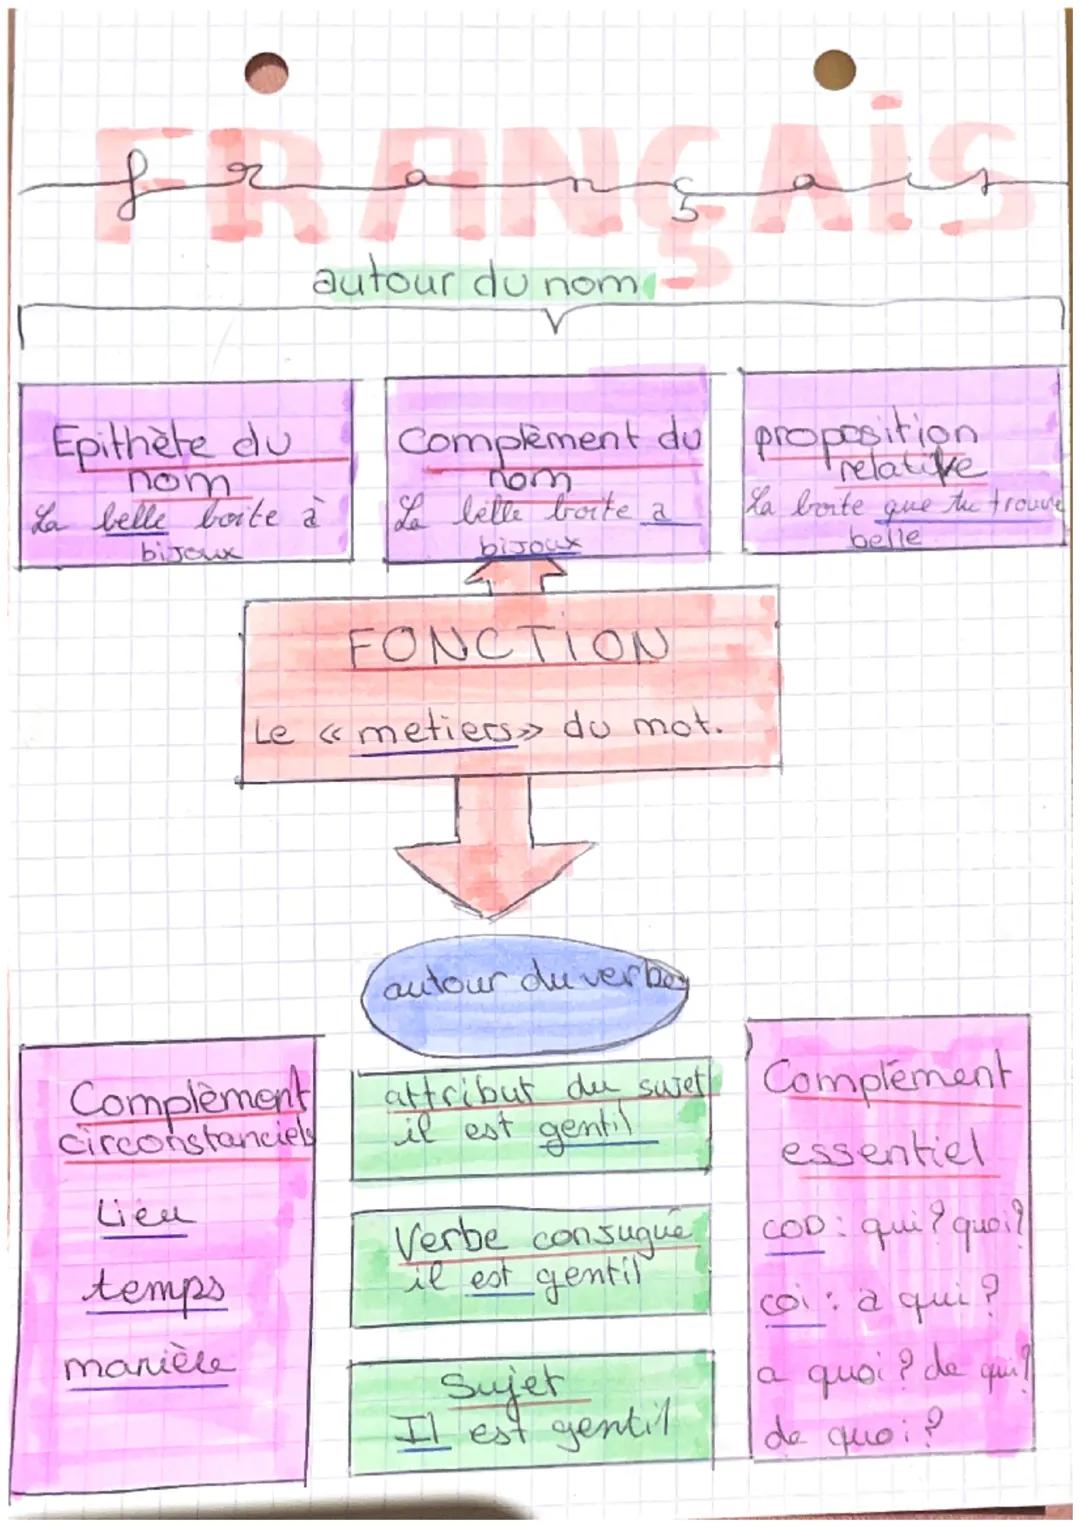 FRANÇAIS
français
autour du nom
Epithète du
nom
La belle boite à
bijoux
Complèment du
nom
La belle boite a
bijoux
proposition
relative
La boite que tu trouve
belle
FONCTION
Le « metiers» du mot.
autour du verbe
Complèment
circonstanciels
Lieu
temps
manière
attribut du sujet
il est gentil
Verbe conjugué
il est gentil
Sujet
Il est gentil
Complément
essentiel
COD : qui? quoi?
coi : a qui ?
a quoi ? de qui?
de quoi ?